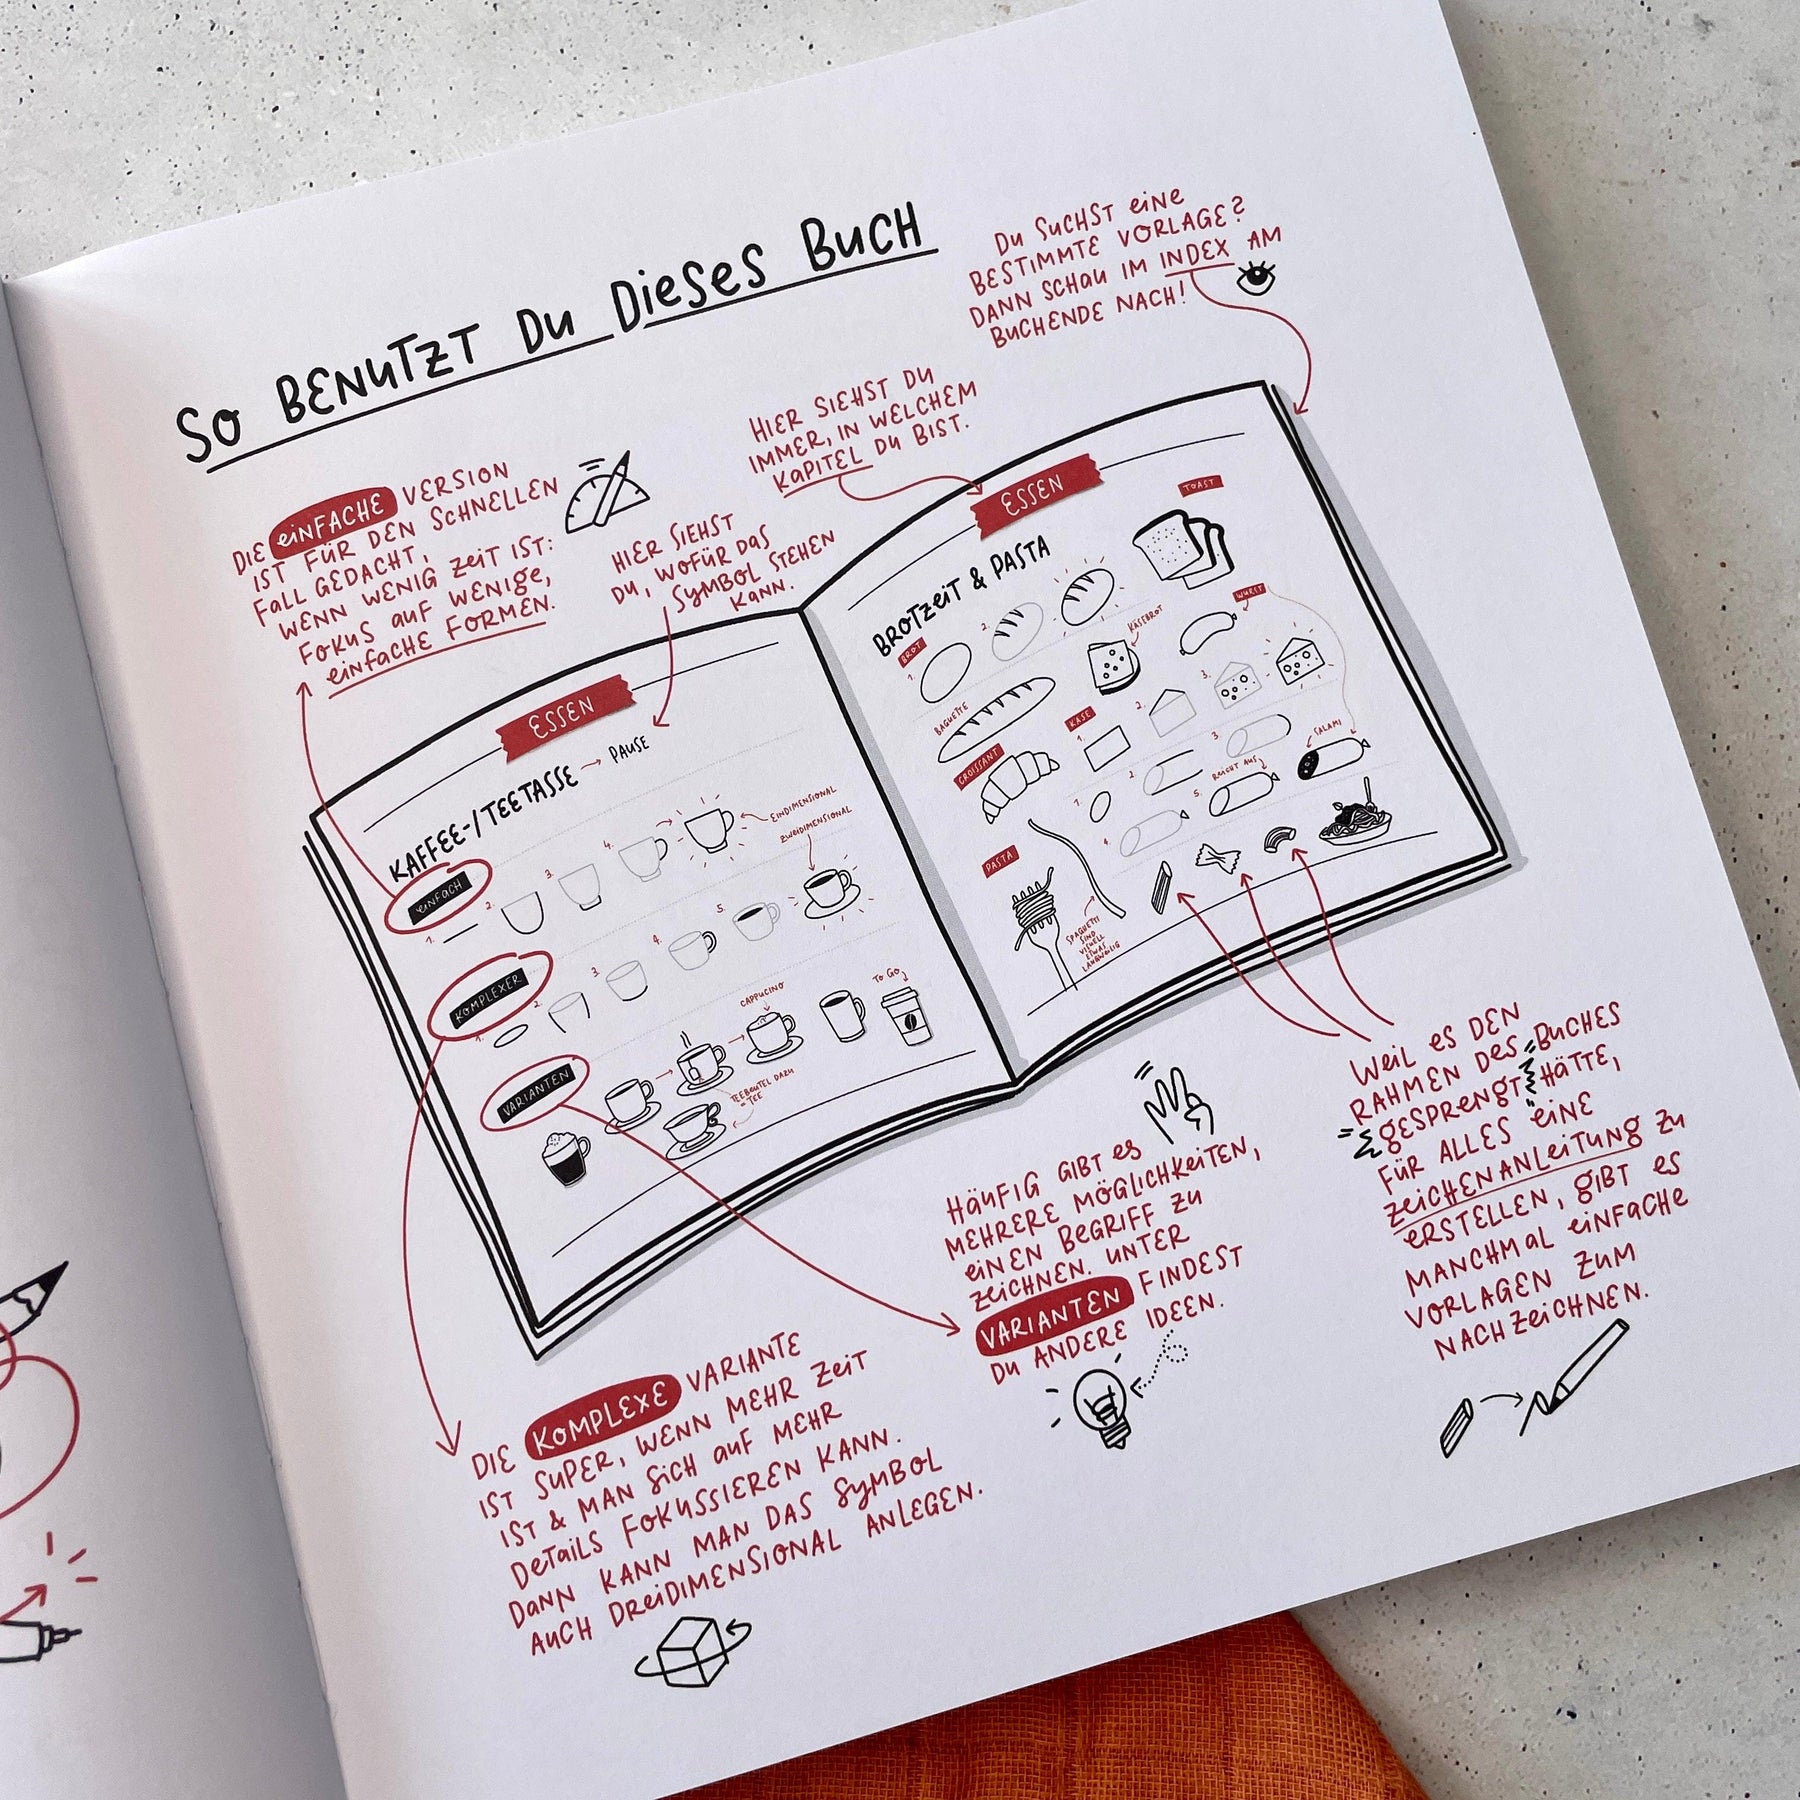 So BENUTZT DU DIESES BUCH
DU SUCHST EINE
BESTIMMTE VORLAGE?
DANN SCHAU IM INDEX AM
BUCHENDE NACH!
HIER SIEHST DU
IMMER, IN WELCHEM
KAPITEL DU BIST.
DIE EINFACHE VERSION
IST FÜR DEN SCHNELLEN
FALL GEDACHT,
WENN WENIG ZEIT IST:
FOKUS AUF WENIGE,
EINFACHE FORMEN.
HIER SIEHST
DU, WOFÜR DAS
SYMBOL STEHEN
KANN.
ESSEN
KAFFEE-/TEETASSE → PAUSE
EINFACH
1.
2.
3.
4.
EINDIMENSIONAL
ZWEIDIMENSIONAL
KOMPLEXER
1.
2.
3.
4.
5.
VARIANTEN
CAPPUCINO
TO GO
TEEBEUTEL DAZU
= TEE
ESSEN
BROTZEIT & PASTA
TOAST
BROT
1.
2.
KÄSEBROT
WURST
BAGUETTE
KÄSE
1.
2.
3.
CROISSANT
1.
2.
3.
4.
5.
REICHT AUS
SALAMI
PASTA
SPAGHETTI
SIND
VISUELL
ETWAS
LANGWEILIG
WEIL ES DEN
RAHMEN DES BUCHES
GESPRENGT HÄTTE,
FÜR ALLES EINE
ZEICHENANLEITUNG ZU
ERSTELLEN, GIBT ES
MANCHMAL EINFACHE
VORLAGEN ZUM
NACHZEICHNEN.
HÄUFIG GIBT ES
MEHRERE MÖGLICHKEITEN,
EINEN BEGRIFF ZU
ZEICHNEN. UNTER
VARIANTEN FINDEST
DU ANDERE IDEEN.
DIE KOMPLEXE VARIANTE
IST SUPER, WENN MEHR ZEIT
IST & MAN SICH AUF MEHR
DETAILS FOKUSSIEREN KANN.
DANN KANN MAN DAS SYMBOL
AUCH DREIDIMENSIONAL ANLEGEN.